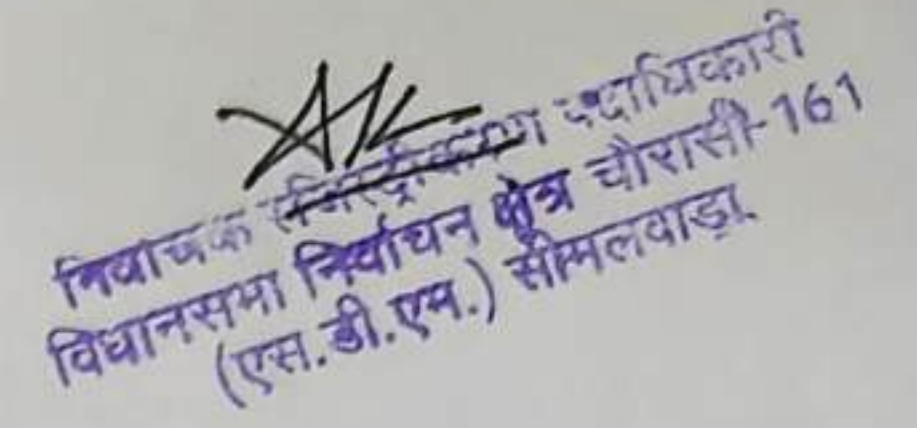 निर्वाचक रजिस्ट्रीकरण पदाधिकारी
विधानसभा निर्वाचन क्षेत्र चौरासी-161
(एस.डी.एम.) सीमलवाड़ा